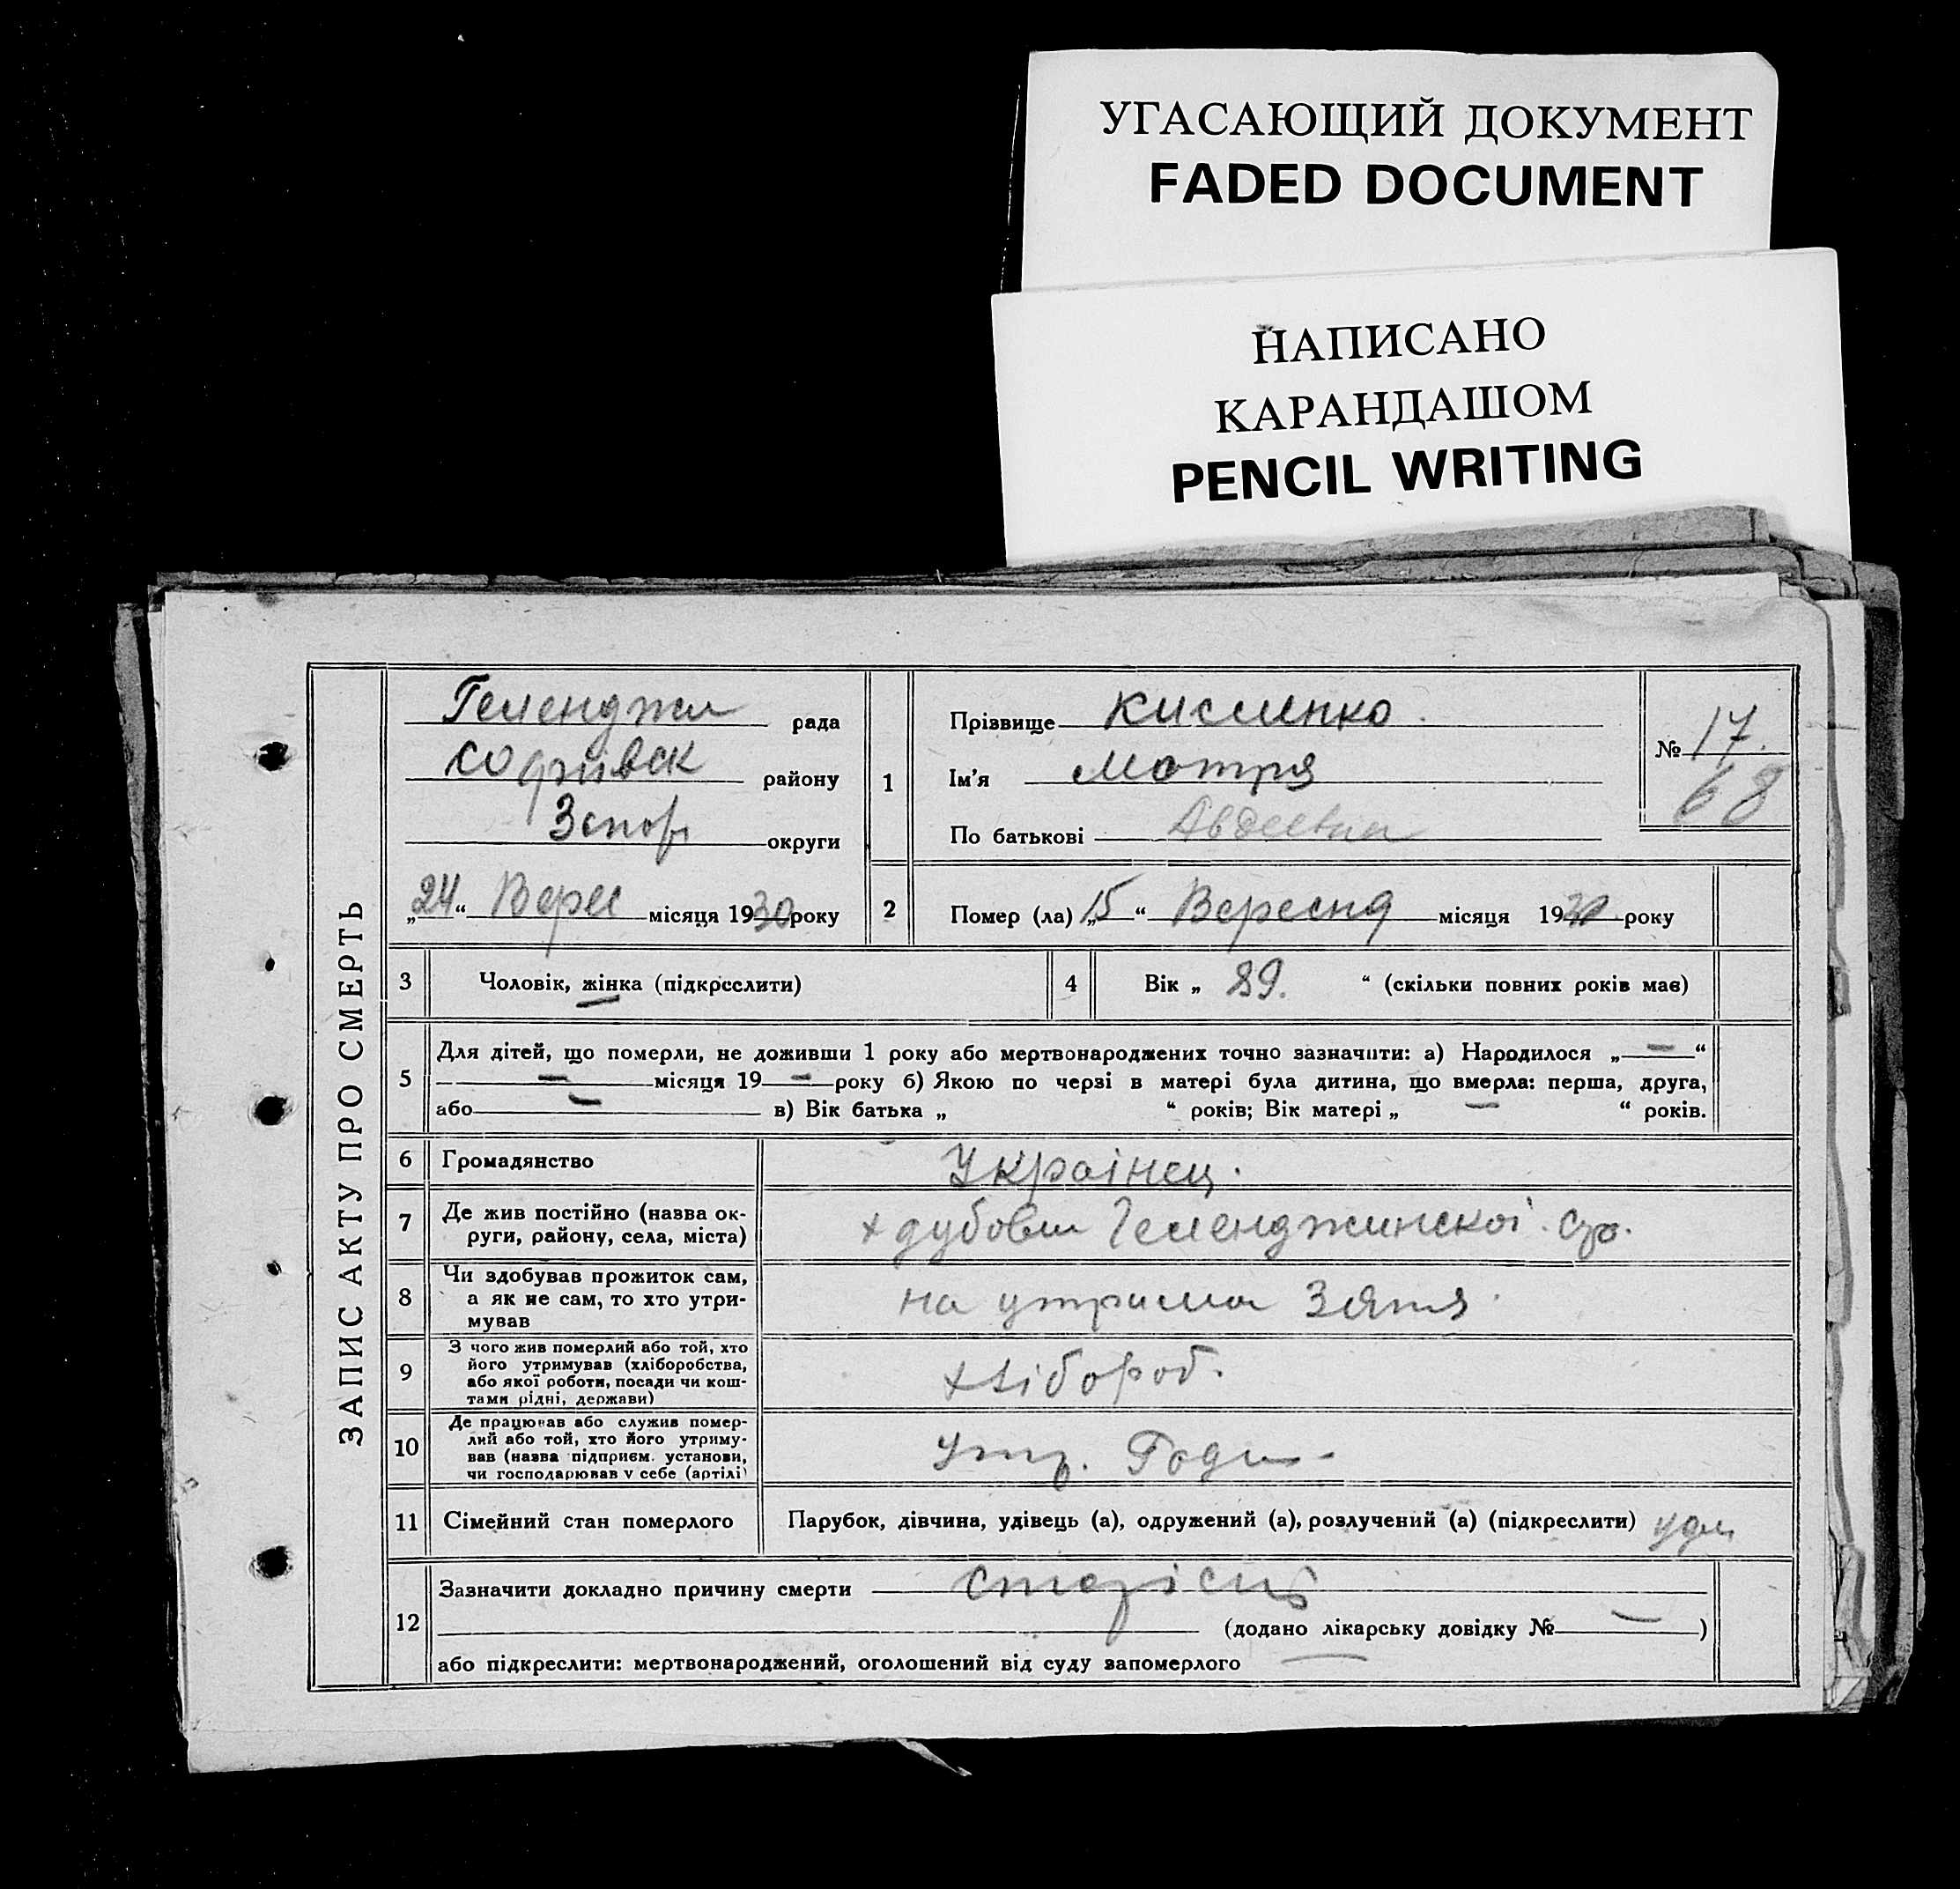 УГАСАЮЩИЙ ДОКУМЕНТ
FADED DOCUMENT
НАПИСАНО
КАРАНДАШОМ
PENCIL WRITING
ЗАПИС АКТУ ПРО СМЕРТЬ
рада
району
Запор округи
„24“ Верес місяця 1930 року
1
Прізвище
Ім'я Мотря
По батькові
№ 17.
68
2
Помер (ла) „15“ Вересня місяця 1930 року
3
Чоловік, жінка (підкреслити)
4
Вік „ 89. “ (скільки повних років має)
5
Для дітей, що померли, не доживши 1 року або мертвонароджених точно зазначити: а) Народилося „ — “
— місяця 19 — року б) Якою по черзі в матері була дитина, що вмерла: перша, друга,
або — в) Вік батька „ “ років; Вік матері „ — “ років.
6
Громадянство
Українец.
7
Де жив постійно (назва ок-
руги, району, села, міста)
8
Чи здобував прожиток сам,
а як не сам, то хто утри-
мував
на утрима Зятя
9
З чого жив померлий або той, хто
його утримував (хліборобства,
або якої роботи, посади чи кош-
тами рідні, держави)
хлібороб.
10
Де працював або служив помер-
лий або той, хто його утриму-
вав (назва підприєм. установи,
чи господарював у себе (артілі)
11
Сімейний стан померлого
Парубок, дівчина, удівець (а), одружений (а), розлучений (а) (підкреслити)
12
Зазначити докладно причину смерти старість
(додано лікарську довідку № — )
або підкреслити: мертвонароджений, оголошений від суду запомерлого —